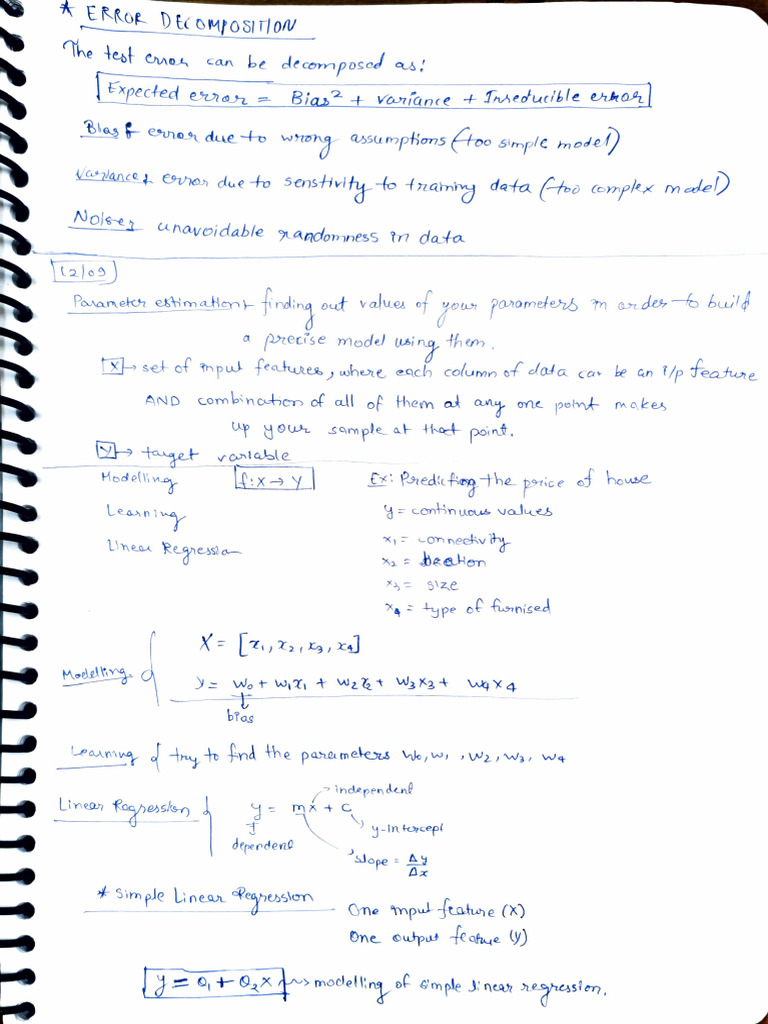 * ERROR DECOMPOSITION
The test error can be decomposed as:
Expected error = Bias² + variance + Irreducible error
Bias → error due to wrong assumptions (too simple model)
Variance → error due to senstivity to training data (too complex model)
Noise → unavoidable randomness in data
12/09
Parameter estimation → finding out values of your parameters in order to build
a precise model using them.
X → set of input features, where each column of data can be an i/p feature
AND combination of all of them at any one point makes
up your sample at that point.
Y → target variable
Modelling f: X → Y Ex: Predicting the price of house
Learning y = continuous values
Linear Regression x₁ = connectivity
x₂ = location
x₃ = size
x₄ = type of furnised
X = [x₁, x₂, x₃, x₄]
Modelling y = w₀ + w₁x₁ + w₂x₂ + w₃x₃ + w₄x₄
bias
Learning { try to find the parameters w₀, w₁, w₂, w₃, w₄
independent
Linear Regression { y = mx + c
y-intercept
dependent
slope = Δy/Δx
* Simple Linear Regression
One input feature (x)
One output feature (y)
y = θ₁ + θ₂x → modelling of simple linear regression.